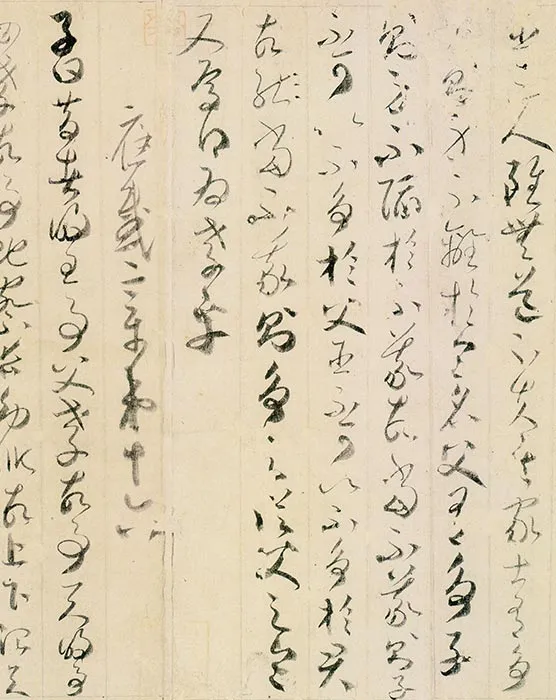 臣三人雖無道不失其家士有爭
友則身不離於令名父有爭子
則身不陷於不義故當不義則子
不可以不爭於父臣不可以不爭於君
故當不義則爭之從父之令
又焉得為孝乎
應感章第十六
子曰昔者明王事父孝故事天明事
母孝故事地察長幼順故上下治天